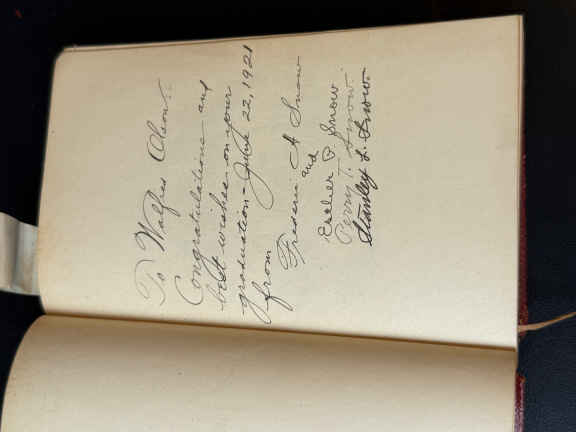 To Walfred Olson:
Congratulations and
best wishes on your
graduation - July 22, 1921
from
Frederic A Snow
and
Esther P Snow
Perry T. Snow.
Stanley L. Snow.